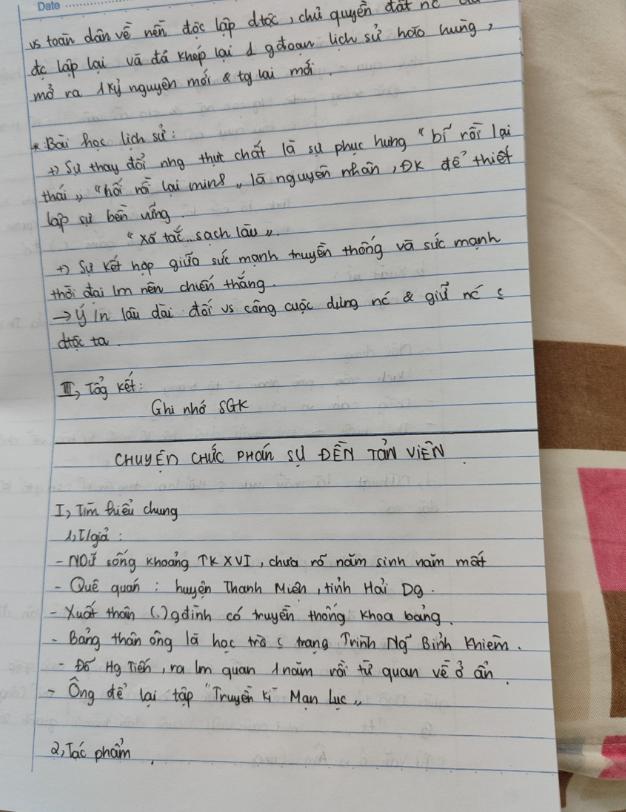 Date
vs toàn dân về nền độc lập dtộc, chủ quyền đất nc
đc lập lại và đã khép lại 1 gđoạn lịch sử hào hùng,
mở ra 1 kỷ nguyên mới & tg lai mới.
* Bài học lịch sử:
+) Sự thay đổi nhg thực chất là sự phục hưng "bĩ rồi lại
thái", "hối rồi lại minh" là nguyên nhân, ĐK để thiết
lập sự bền vững.
"Xã tắc... sạch làu".
+) Sự kết hợp giữa sức mạnh truyền thống và sức mạnh
thời đại lm nên chiến thắng.
→ Ý in lâu dài đối vs công cuộc dựng nc & giữ nc s
dtộc ta.
III, Tổg kết:
Ghi nhớ SGK
CHUYỆN CHỨC PHÁN SỰ ĐỀN TẢN VIÊN
I, Tìm hiểu chung
1, T/giả:
- NDữ sống khoảng TK XVI, chưa rõ năm sinh năm mất
- Quê quán: huyện Thanh Miện, tỉnh Hải Dg.
- Xuất thân (.) gđình có truyền thống khoa bảng.
- Bảng thân ông là học trò s trạng Trình Ng~ Bỉnh Khiêm.
- Đỗ Hg Tiến, ra lm quan 1 năm rồi từ quan về ở ẩn.
- Ông để lại tập "Truyền kì Mạn Lục".
2, Tác phẩm.